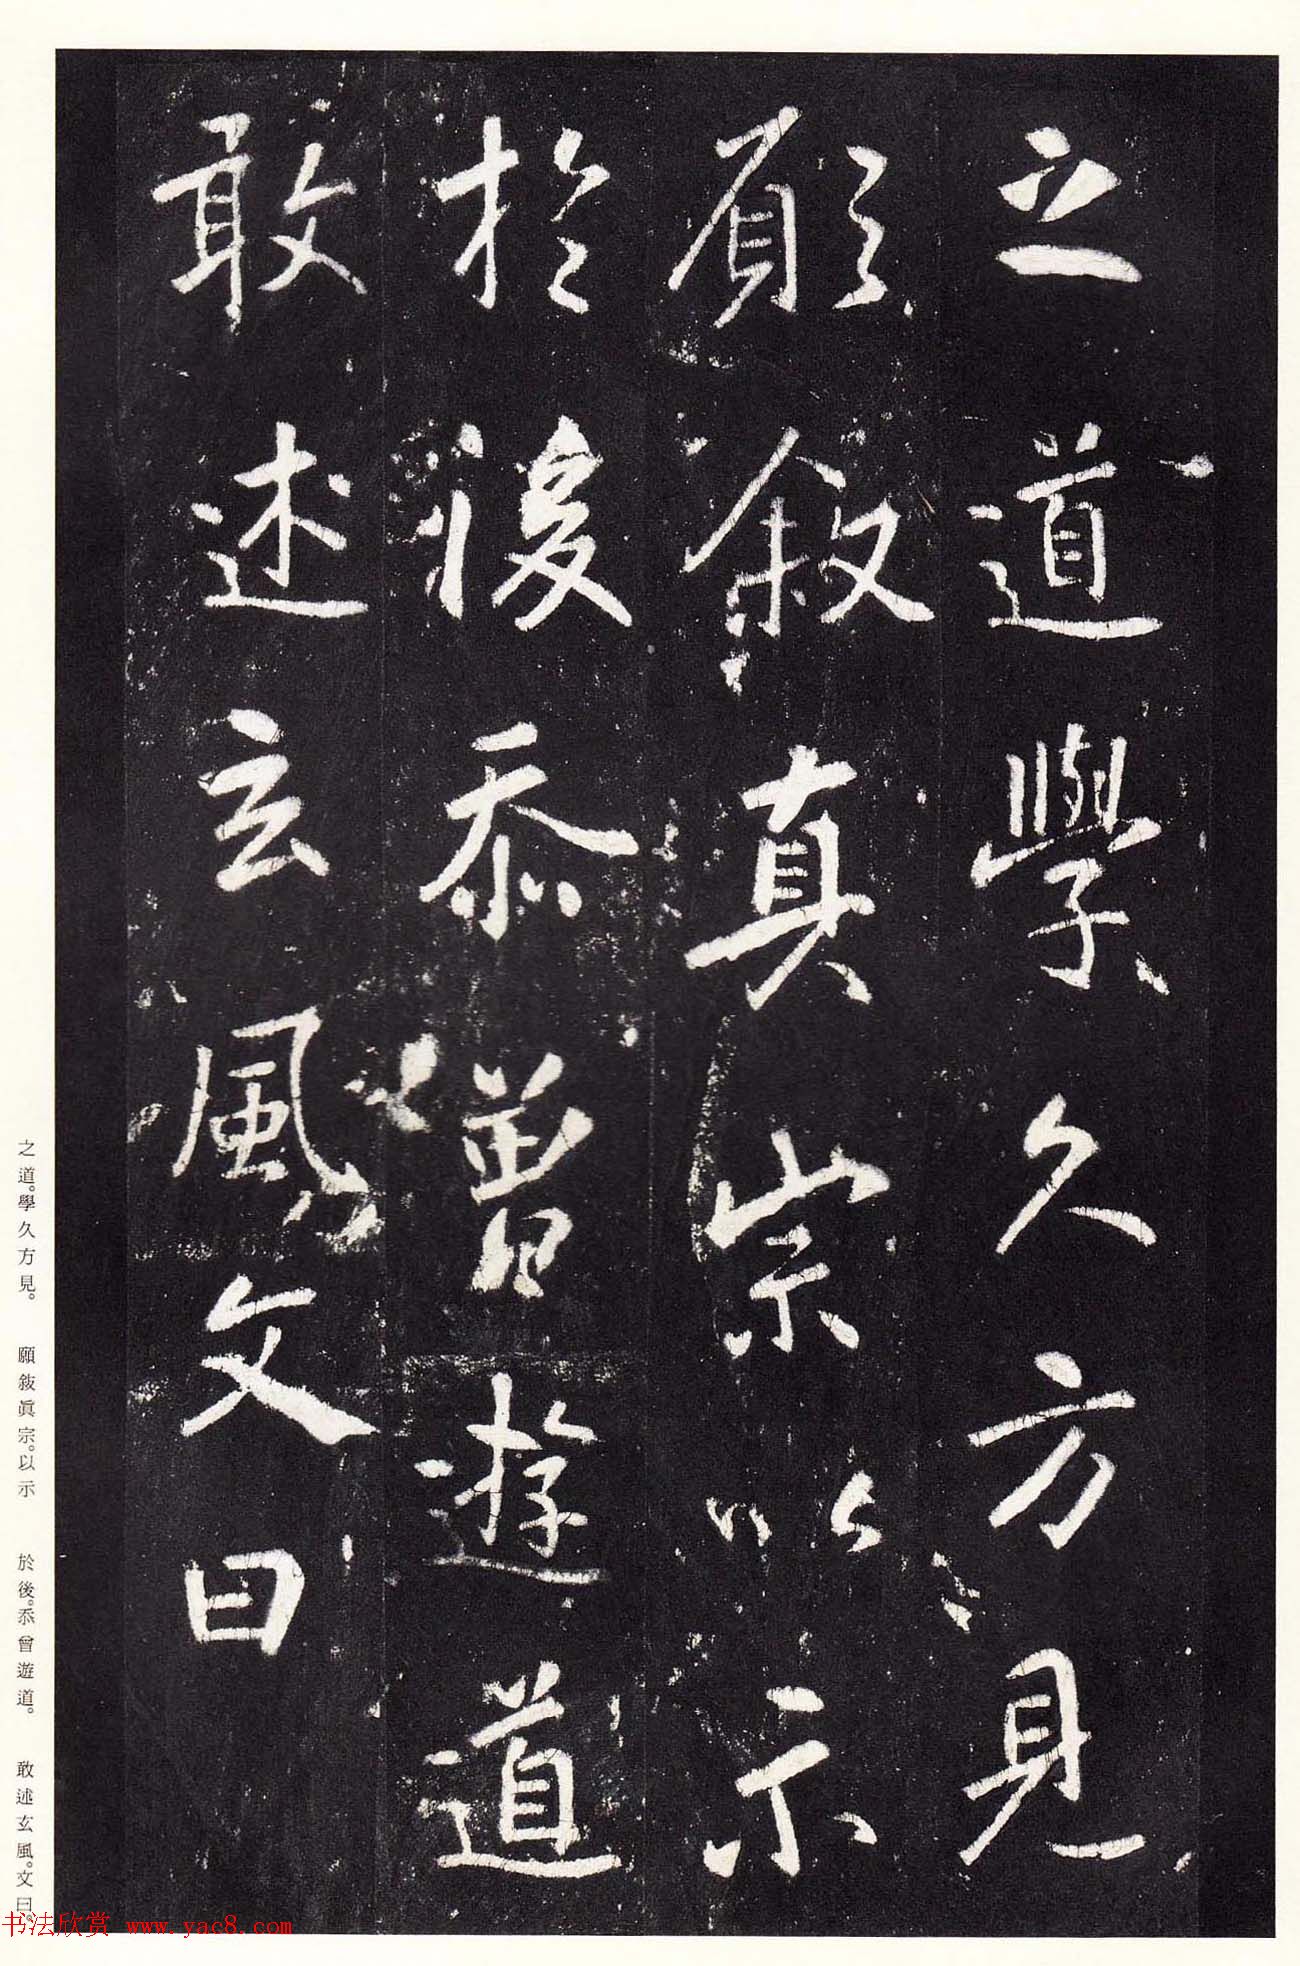 之道學久方見
願敘真宗以示
於後忝曾遊道
敢述玄風文曰
之道。學久方見。　願敍眞宗。以示　於後。忝曾遊道。　敢述玄風。文曰。
书法欣赏 www.yac8.com